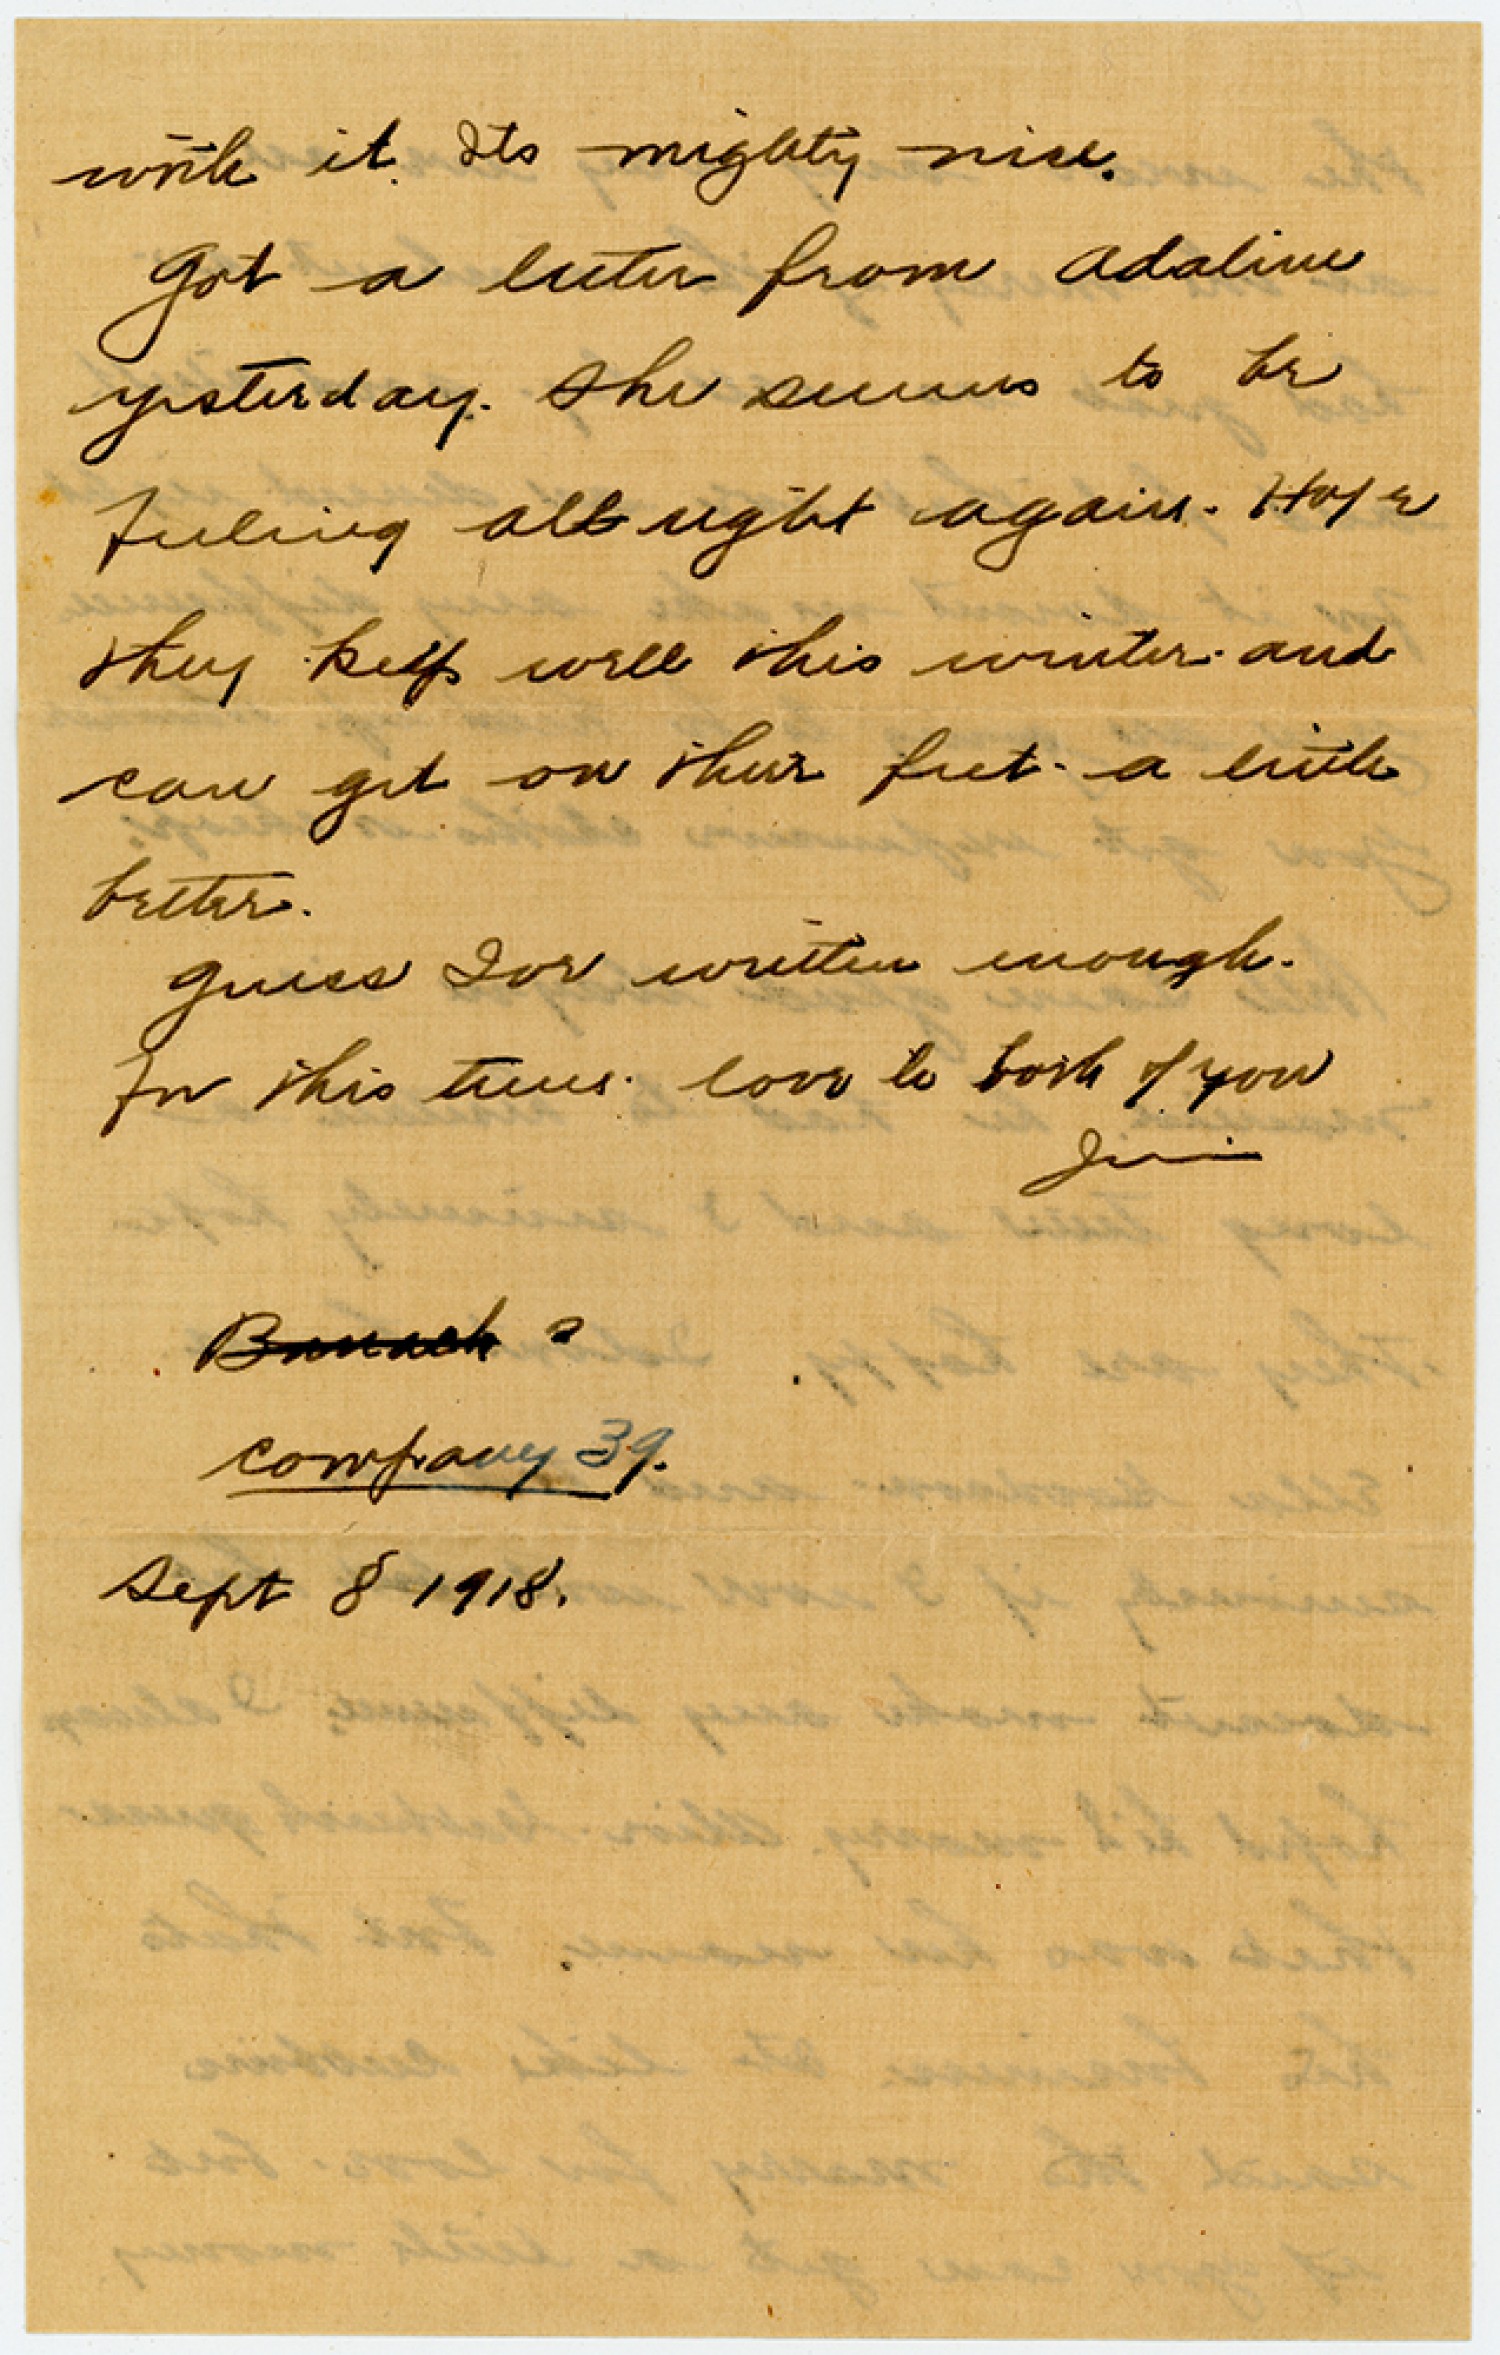 with it. Its mighty nice.
Got a letter from Adaline
yesterday. She seems to be
feeling all right again. Hope
they keep well this winter and
can get on their feet a little
better.
Guess Ive written enough
for this time. love to both of you
Jim
Company 39.
Sept 8 1918.